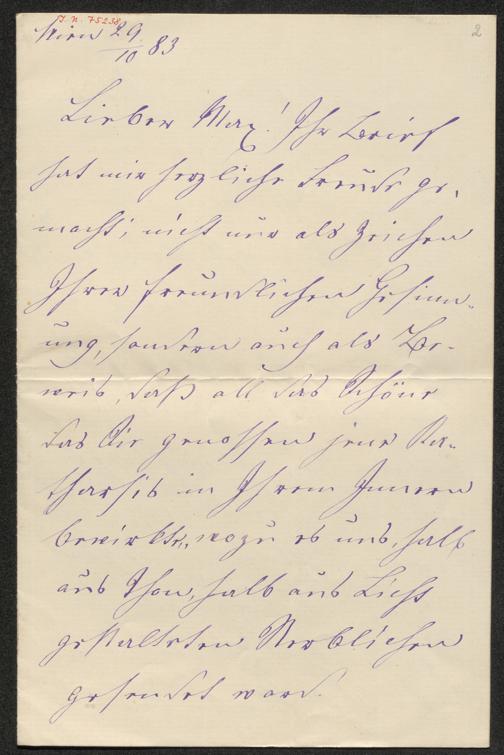 J. N. 75238
2
Wien 29/10 83
Lieber Max! Ihr Brief
hat mir herzliche Freude ge-
macht; nicht nur als Zeichen
Ihrer freundlichen Gesinn-
ung, sondern auch als Be-
weis, daß all das Schöne
das Sie genossen jene Ka-
tharsis in Ihrem Innern
bewirkte, wozu es uns, halb
aus Thon, halb aus Licht
gestalteten Sterblichen
gesendet ward.